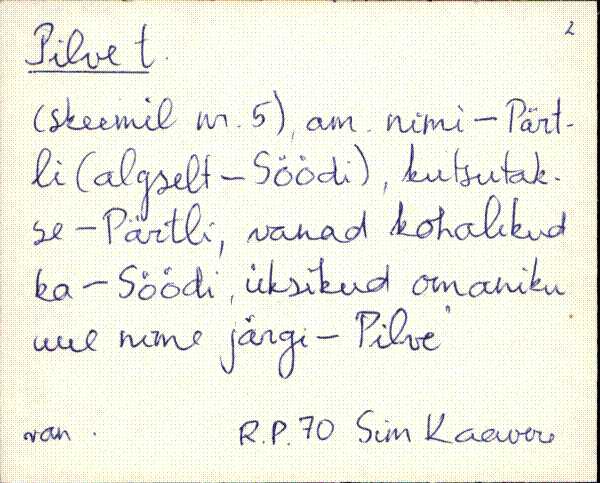 2
Pilve t.
(skeemil nr. 5), am. nimi – Pärt-
li (algselt – Söödi), kutsutak-
se – Pärtli, vanad kohalikud
ka – Söödi, üksikud omaniku
uue nime järgi – Pilve"
van.
R.P. 70 Sim Kaavere